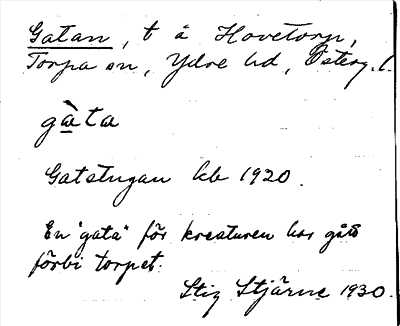 Gatan, t å Hovetorp,
Torpa sn, Ydre hd, Österg. l.
gàta
Gatstugan kb 1920.
En "gata" för kreaturen har gått
förbi torpet.
Stig Stjärne 1930.